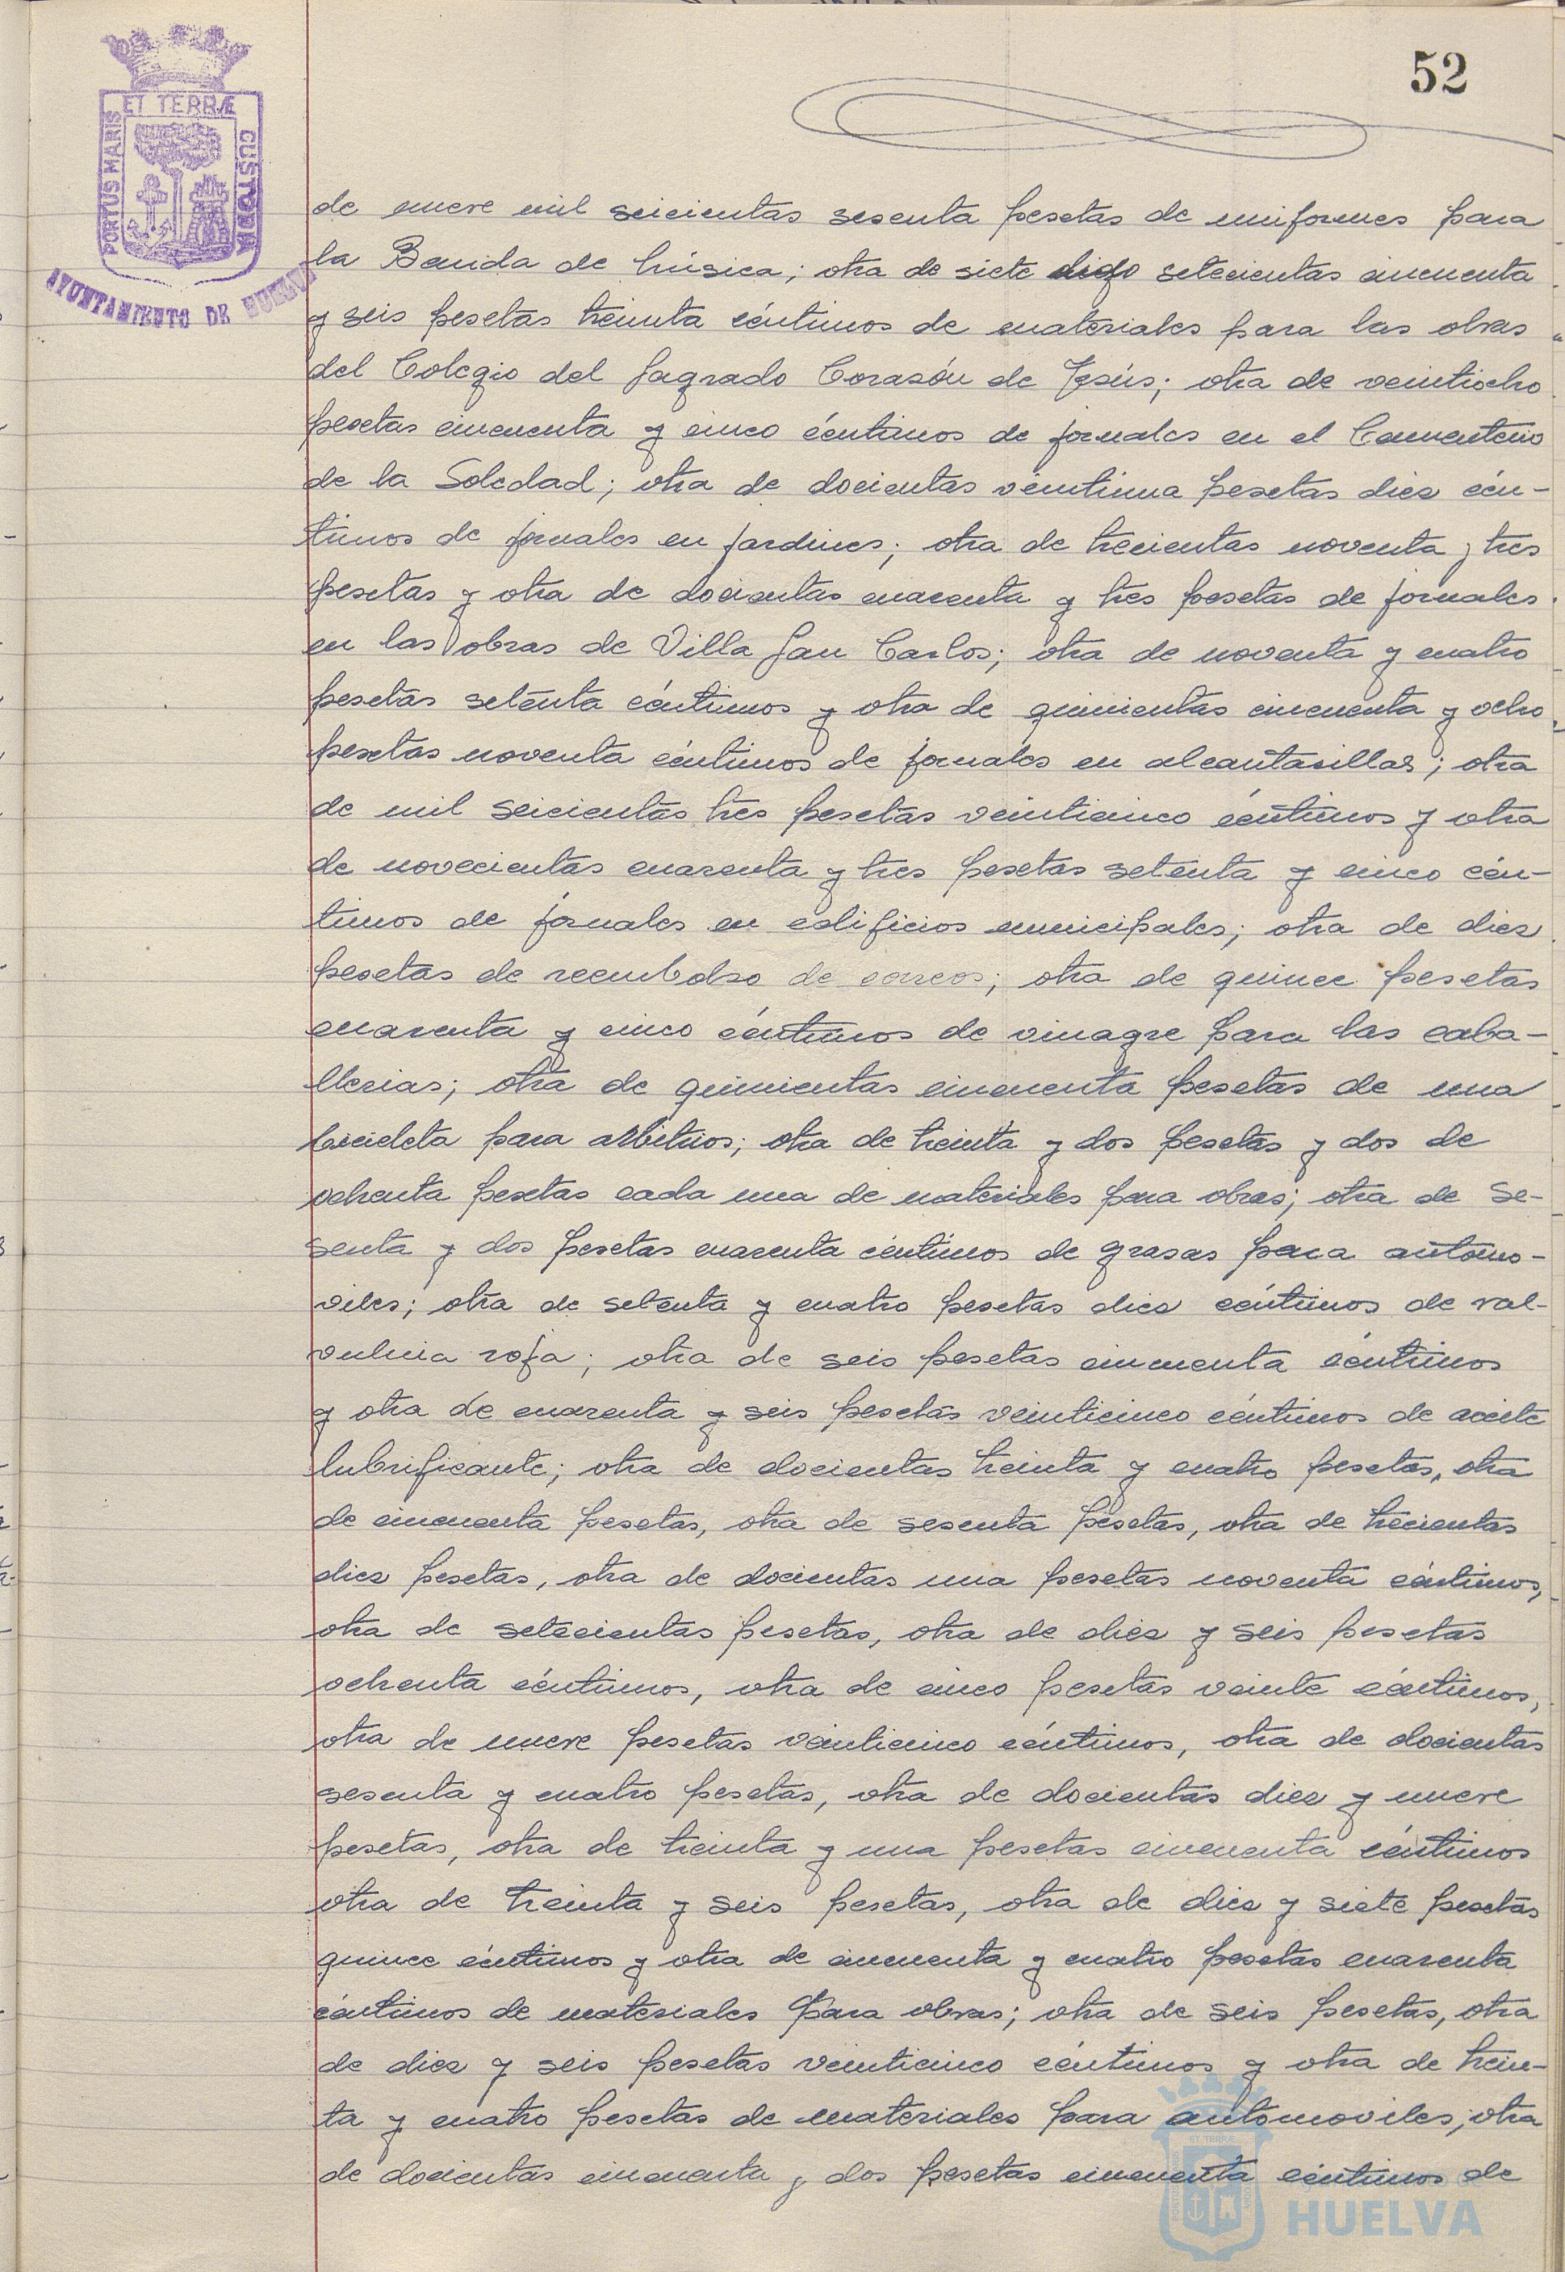 52
ET TERRÆ
PORTUS MARIS
CUSTODIA
AYUNTAMIENTO DE HUELVA
de nueve mil seicientas sesenta pesetas de uniformes para
la Banda de Música; otra de siete digo setecientas cincuenta
y seis pesetas treinta céntimos de materiales para las obras
del Colegio del Sagrado Corasón de Jesús; otra de veintiocho
pesetas cincuenta y cinco céntimos de jornales en el Cementerio
de la Soledad; otra de docientas veintiuna pesetas dies cén-
timos de jornales en jardines; otra de trecientas noventa y tres
pesetas y otra de docientas cuarenta y tres pesetas de jornales
en las obras de Villa San Carlos; otra de noventa y cuatro
pesetas setenta céntimos y otra de quinientas cincuenta y ocho
pesetas noventa céntimos de jornales en alcantasillas; otra
de mil seicientas tres pesetas veinticinco céntimos y otra
de novecientas cuarenta y tres pesetas setenta y cinco cén-
timos de jornales en edificios municipales; otra de dies
pesetas de reembolso de correos; otra de quince pesetas
cuarenta y cinco céntimos de vinagre para las caba-
llerias; otra de quinientas cincuenta pesetas de una
bicicleta para arbitrios; otra de treinta y dos pesetas y dos de
ochenta pesetas cada una de materiales para obras; otra de se-
senta y dos pesetas cuarenta céntimos de grasas para automo-
viles; otra de setenta y cuatro pesetas dies céntimos de val-
vulina roja; otra de seis pesetas cincuenta céntimos
y otra de cuarenta y seis pesetas veinticinco céntimos de aceite
lubrificante; otra de docientas treinta y cuatro pesetas, otra
de cincuenta pesetas, otra de sesenta pesetas, otra de trecientas
dies pesetas, otra de docientas una pesetas noventa céntimos,
otra de setecientas pesetas, otra de dies y seis pesetas
ochenta céntimos, otra de cinco pesetas veinte céntimos,
otra de nueve pesetas veinticinco céntimos, otra de docientas
sesenta y cuatro pesetas, otra de docientas dies y nueve
pesetas, otra de treinta y una pesetas cincuenta céntimos
otra de treinta y seis pesetas, otra de dies y siete pesetas
quince céntimos y otra de cincuenta y cuatro pesetas cuarenta
céntimos de materiales para obras; otra de seis pesetas, otra
de dies y seis pesetas veinticinco céntimos y otra de trein-
ta y cuatro pesetas de materiales para automoviles; otra
de docientas cincuenta y dos pesetas cincuenta céntimos de
HUELVA